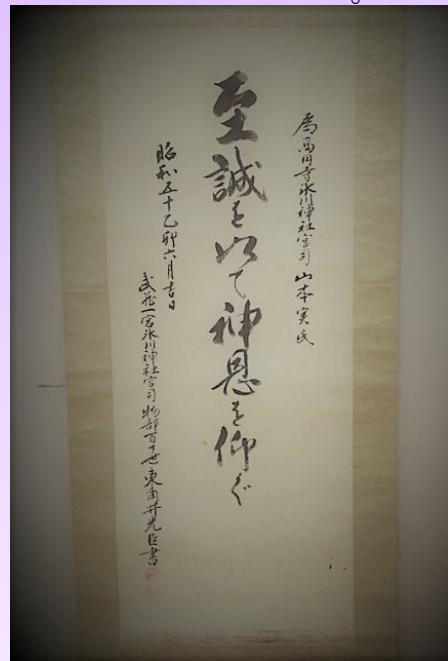 為高円寺氷川神社宮司 山本実氏
至誠を以て神恩を仰ぐ
昭和五十乙卯六月吉日
武蔵一宮氷川神社宮司 物部百十世 東角井光臣書